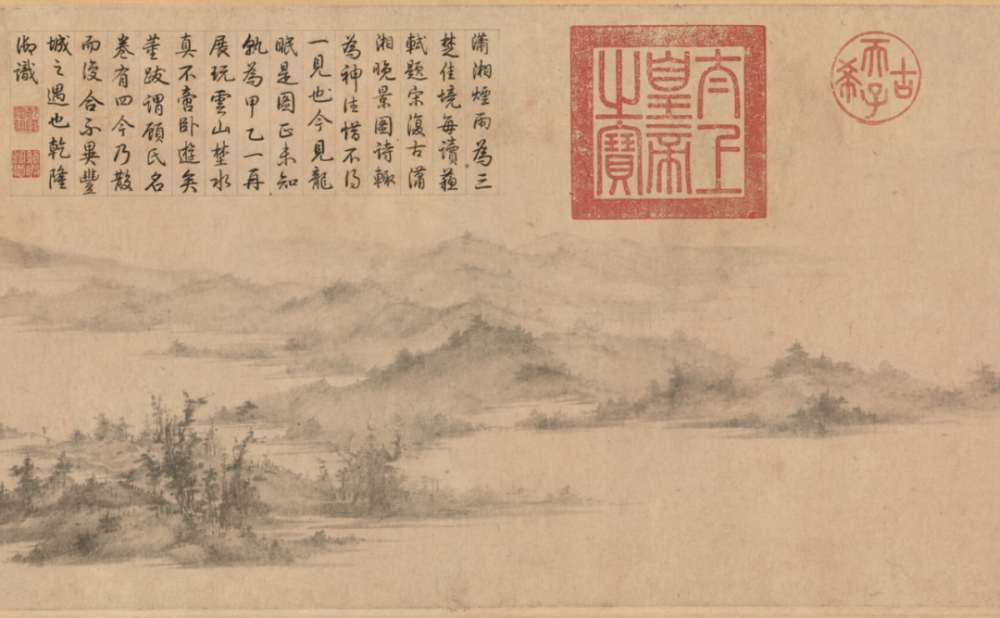 古希天子
太上
皇帝
之寶
瀟湘煙雨為三
楚佳境每讀蘓
軾題宋復古瀟
湘晚景圖詩輒
為神往惜不得
一見也今見龍
眠是圖正未知
孰為甲乙一再
展玩雲山楚水
真不啻卧遊矣
董跋謂顧氏名
卷有四今乃散
而復合不異豐
城之遇也乾隆
御識